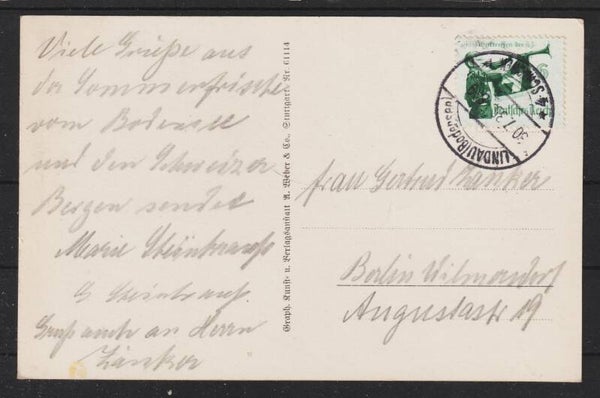 Viele Grüße aus
der Sommerfrische
vom Bodensee
und den Schweizer
Bergen sendet
Marie Steinkrauß
G Steinkrauß.
Gruß auch an Herrn
Zänker
Graph. Kunst- u. Verlagsanstalt A. Weber & Co., Stuttgart. Nr. 61114
6
Deutsches Reich
LINDAU (Bodensee)
30.7.3
Frau Gertrud Zänker
Berlin Wilmersdorf
Augustastr 19